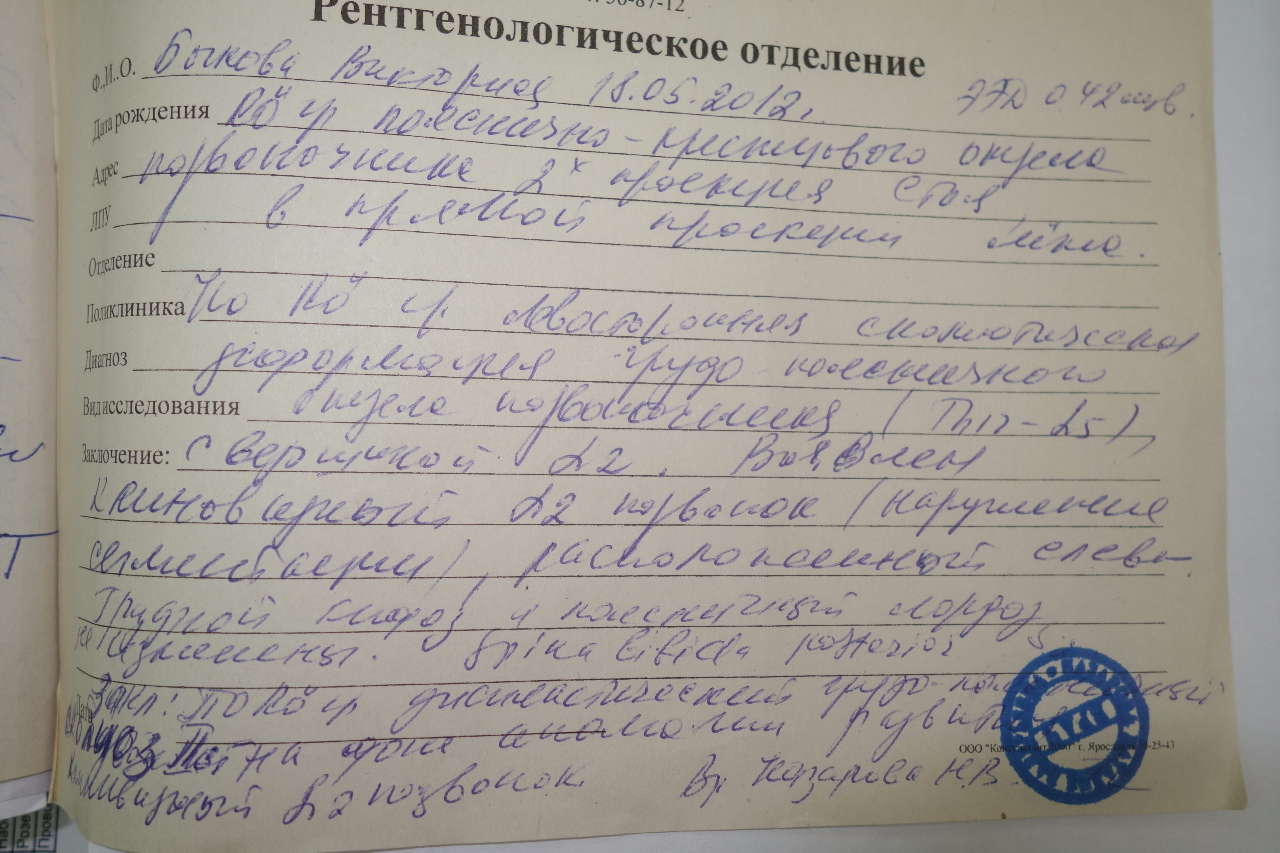 56-87-12
Рентгенологическое отделение
Ф.,И..О. Бычкова Виктория 18.05.2012г. ЭЭД 0.42 мзв.
Дата рождения Rö гр пояснично-крестцового отдела
Адрес позвоночника 2х проекциях стоя,
ЛПУ в прямой проекции лёжа.
Отделение
Поликлиника По Rö гр. левосторонняя сколиотическая
Диагноз деформация грудо-поясничного
Вид исследования отдела позвоночника (Th12-L5),
Заключение: с вершиной L2. Выявлен
клиновидный L2 позвонок (нарушение
сегментации), расположенный слева.
Грудной кифоз и поясничный лордоз
не изменены. Spina bifida posterior S
Закл: По Rö гр диспластический грудо-поясничный
на фоне аномалии развития
клиновидный L2 позвонок. Вр. Назарова Н.В.
ООО "Консалтинг 2000" г. Ярославль 30-25-43